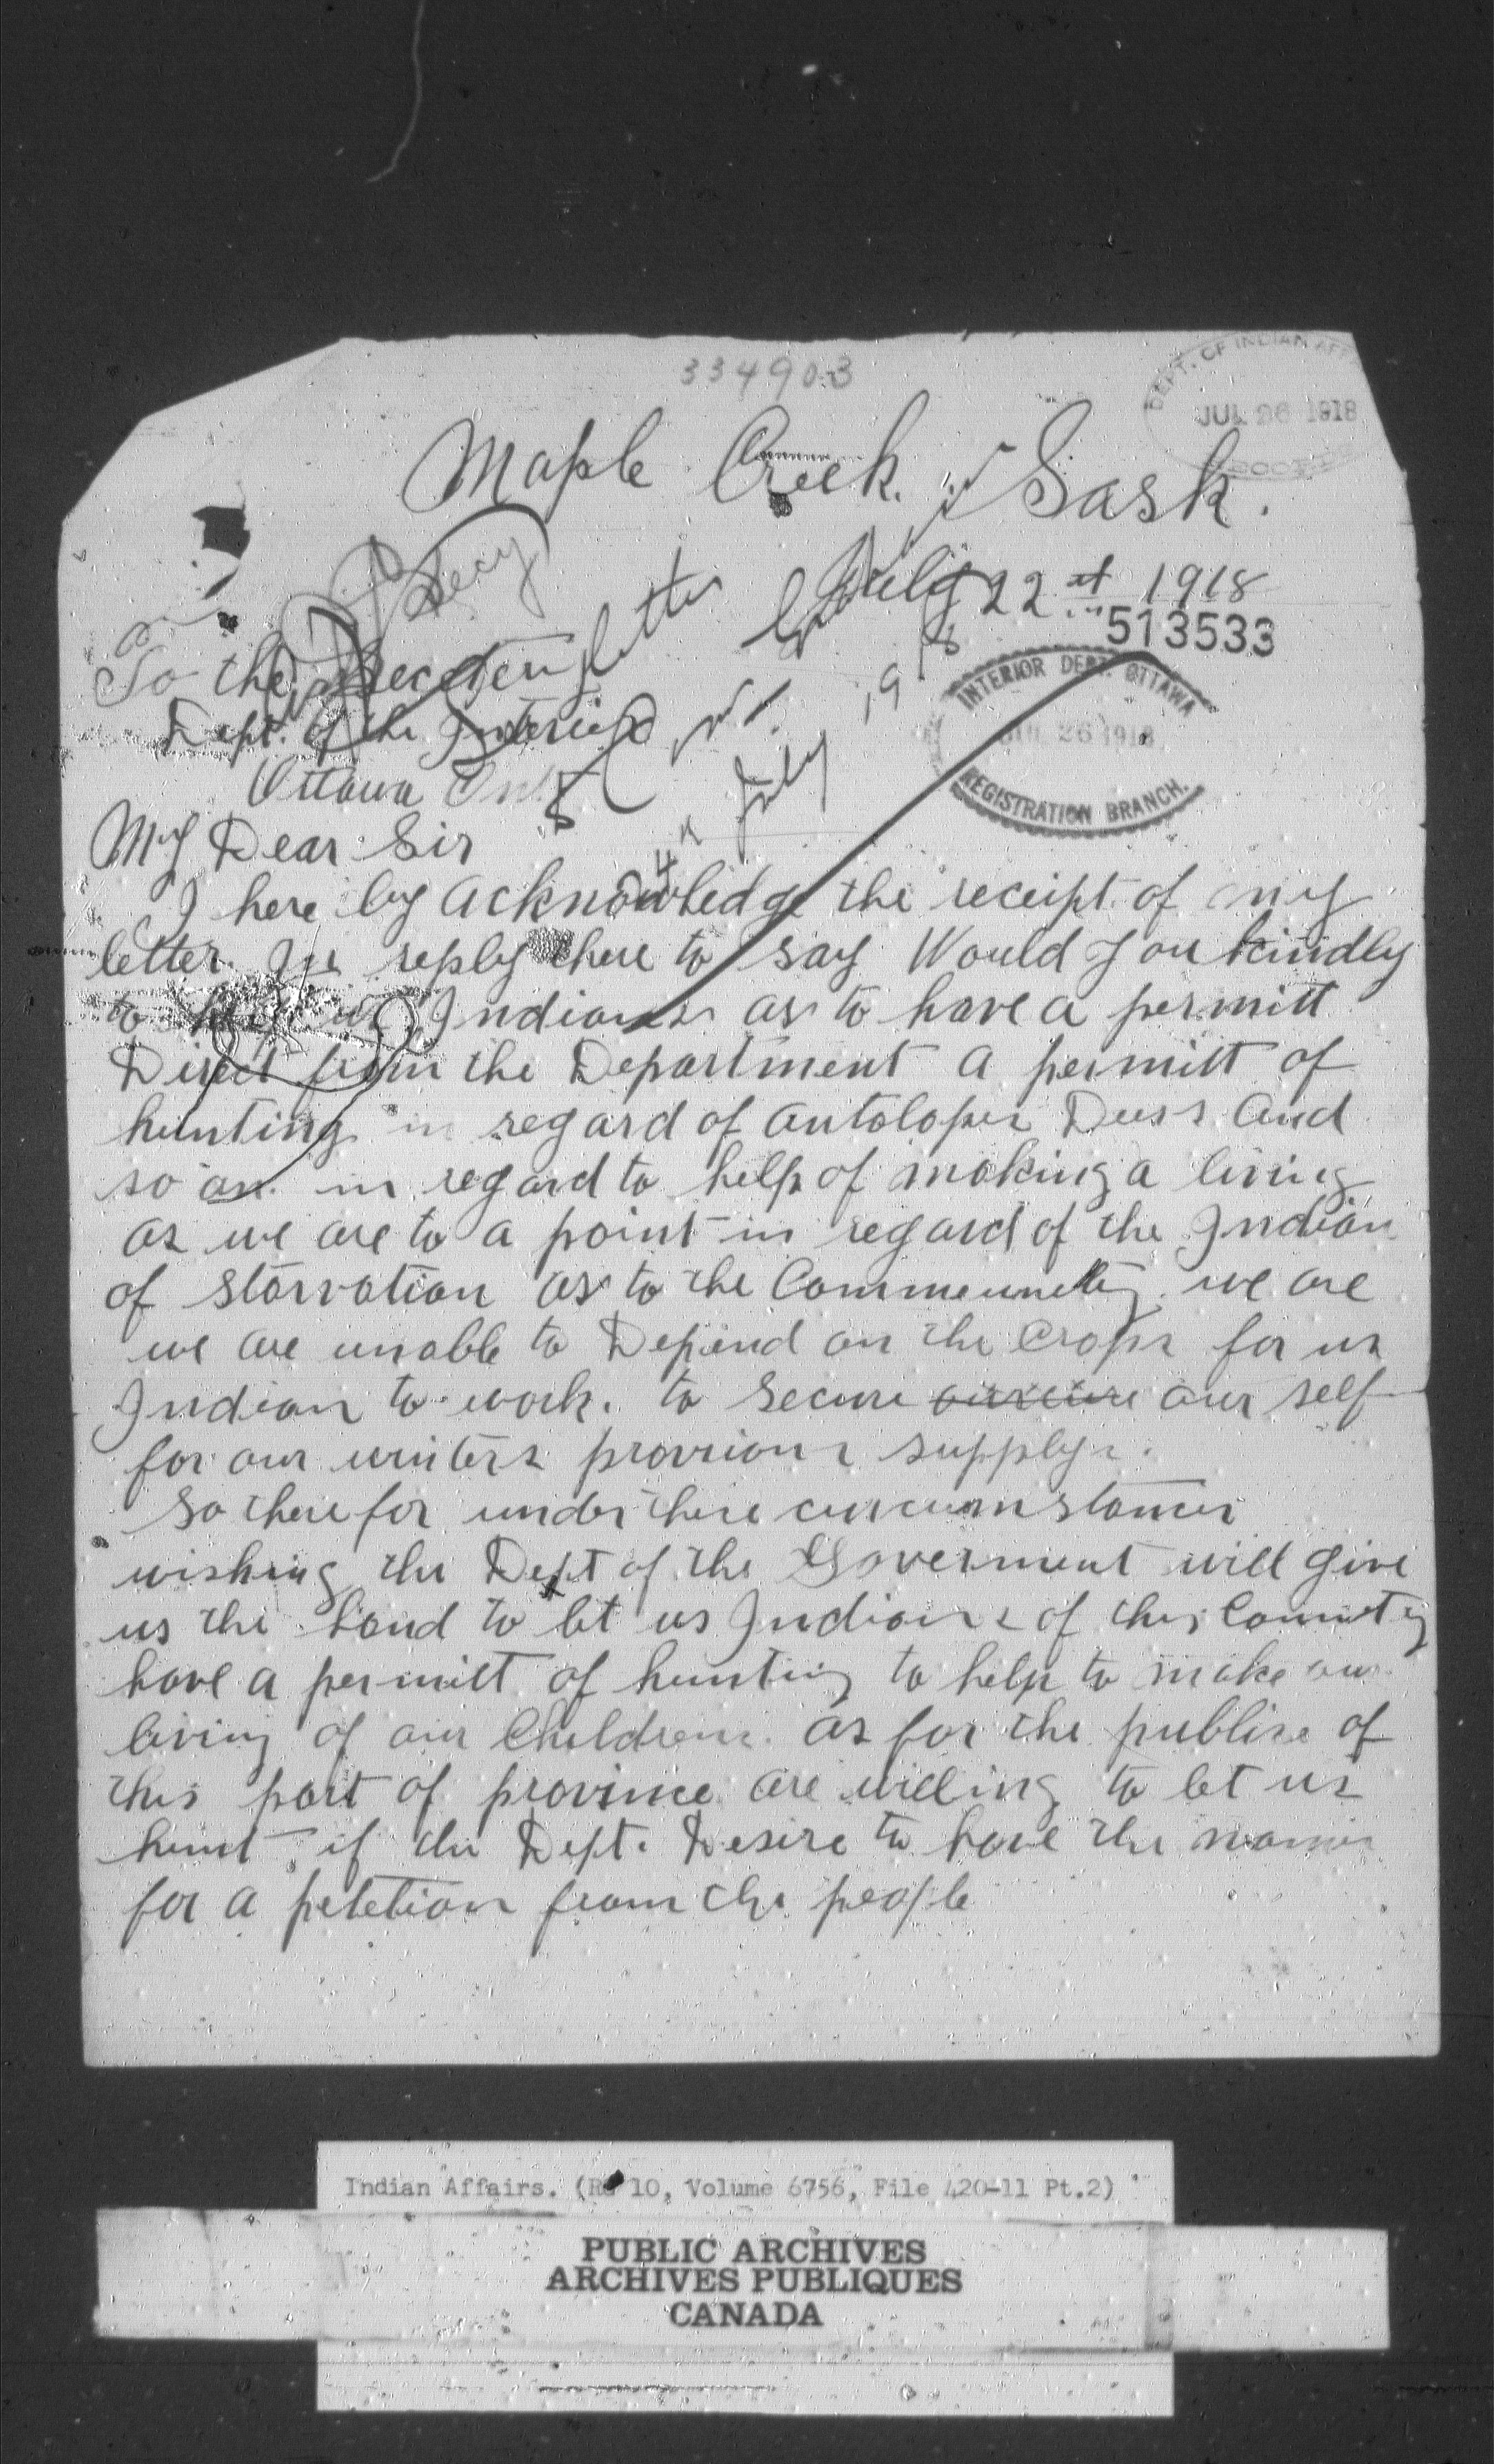 334903
DEPT. OF INDIAN AFF
JUL 26 1918
Maple Creek. Sask.
July 22st 1918
513533
Secy
letter
To the Secretery
Dept. of the Interior
Ottawa Ont
INTERIOR DEPT. OTTAWA
JUL 26 1918
REGISTRATION BRANCH.
July 1918
My Dear Sir
I here by acknowledge the receipt of my
letter. In reply there to say Would you kindly
to us Indians as to have a permitt
Direct from the Department a permitt of
hunting in regard of antolopes Deers and
so on in regard to help of making a living
as we are to a point in regard of the Indian
of storvation as to the Commeunety. we are
we are unable to Depend on the crops for us
Indian to work. to secure our self
for our winters provions supplys.
So therefor under these circumstances
wishing the Dept of the Goverment will give
us the hand to let us Indians of this County
have a permitt of hunting to help to make our
living of our Childrens. as for the publice of
this part of province are willing to let us
hunt if the Dept. Desire to have the names
for a petetion from the people
Indian Affairs. (RG 10, Volume 6756, File 420-11 Pt.2)
PUBLIC ARCHIVES
ARCHIVES PUBLIQUES
CANADA